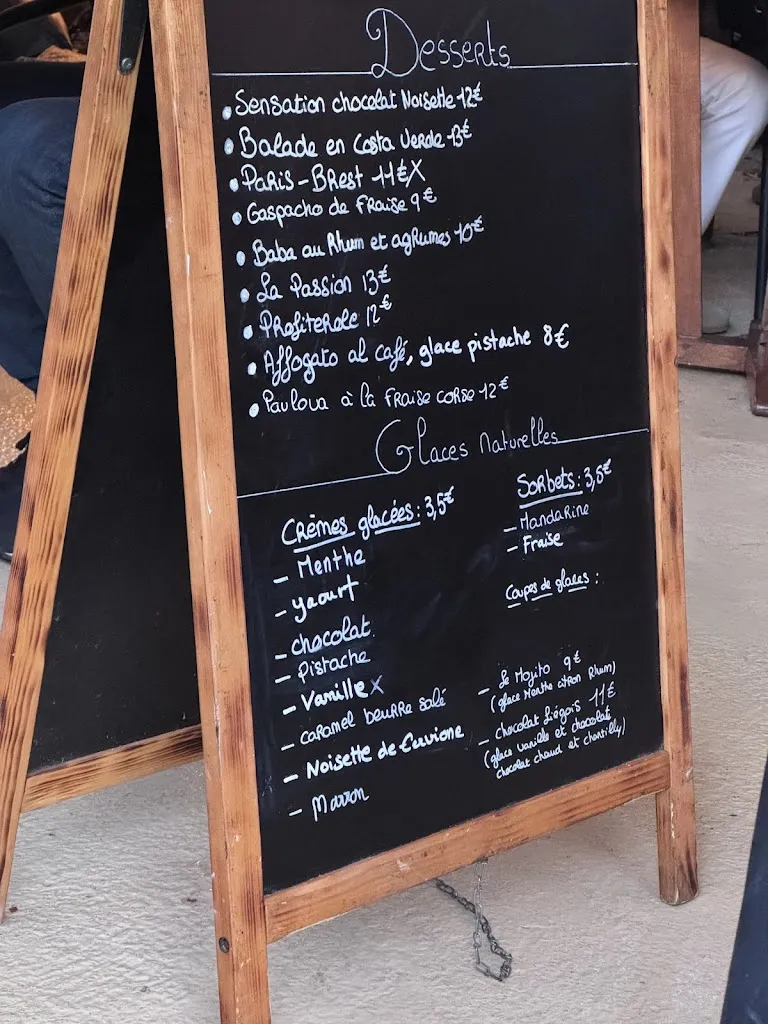 Desserts
• Sensation chocolat Noisette 12€
• Balade en Costa Verde 13€
• Paris-Brest 11€X
• Gaspacho de Fraise 9€
• Baba au Rhum et agrumes 10€
• La Passion 13€
• Profiterole 12€
• Affogato al café, glace pistache 8€
• Pavlova à la fraise corse 12€
Glaces Naturelles
Crèmes glacées: 3,5€
- Menthe
- yaourt
- chocolat
- Pistache
- Vanille X
- caramel beurre salé
- Noisette de Cervione
- Marron
Sorbets: 3,5€
- Mandarine
- Fraise
Coupes de glaces :
- Le Mojito 9€
(glace Menthe citron Rhum)
- chocolat Liégois 11€
(glace vanille et chocolat,
chocolat chaud et chantilly)